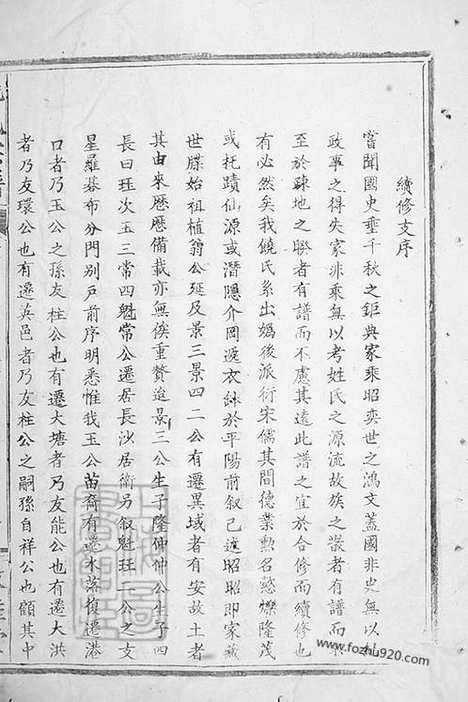 續修支序
嘗聞國史垂千秋之鉅典家乘昭奕世之鴻文蓋國非史無以
政事之得失家非乘無以考姓氏之源流故族之散者有譜而
至於疎地之聯者有譜而不慮其遠此譜之宜於合修而續修也
有必然矣我饒氏系出嬀後派衍宋儒其間德業勲名懋爍隆茂
或托蹟仙源或潛隱介岡遞衣於平陽前叙已述昭昭即家藏
世牒始祖植翁公延及景三景四二公有遷異域者有安故土者
其由來歷歷備載亦無俟重贅迨景三公生子隆仲仲公生子四
長曰玨次玉三常四魁常公遷居長沙居衡另叙魁玨二公之支
星羅碁布分門別戶前序明悉惟我玉公苗裔有遷水落復遷港
口者乃玉公之孫友柱公也有遷大塘者乃友能公也有遷大洪
者乃友環公也有遷英邑者乃友柱公之嗣孫自祥公也顧其中
www.fozhu920.com